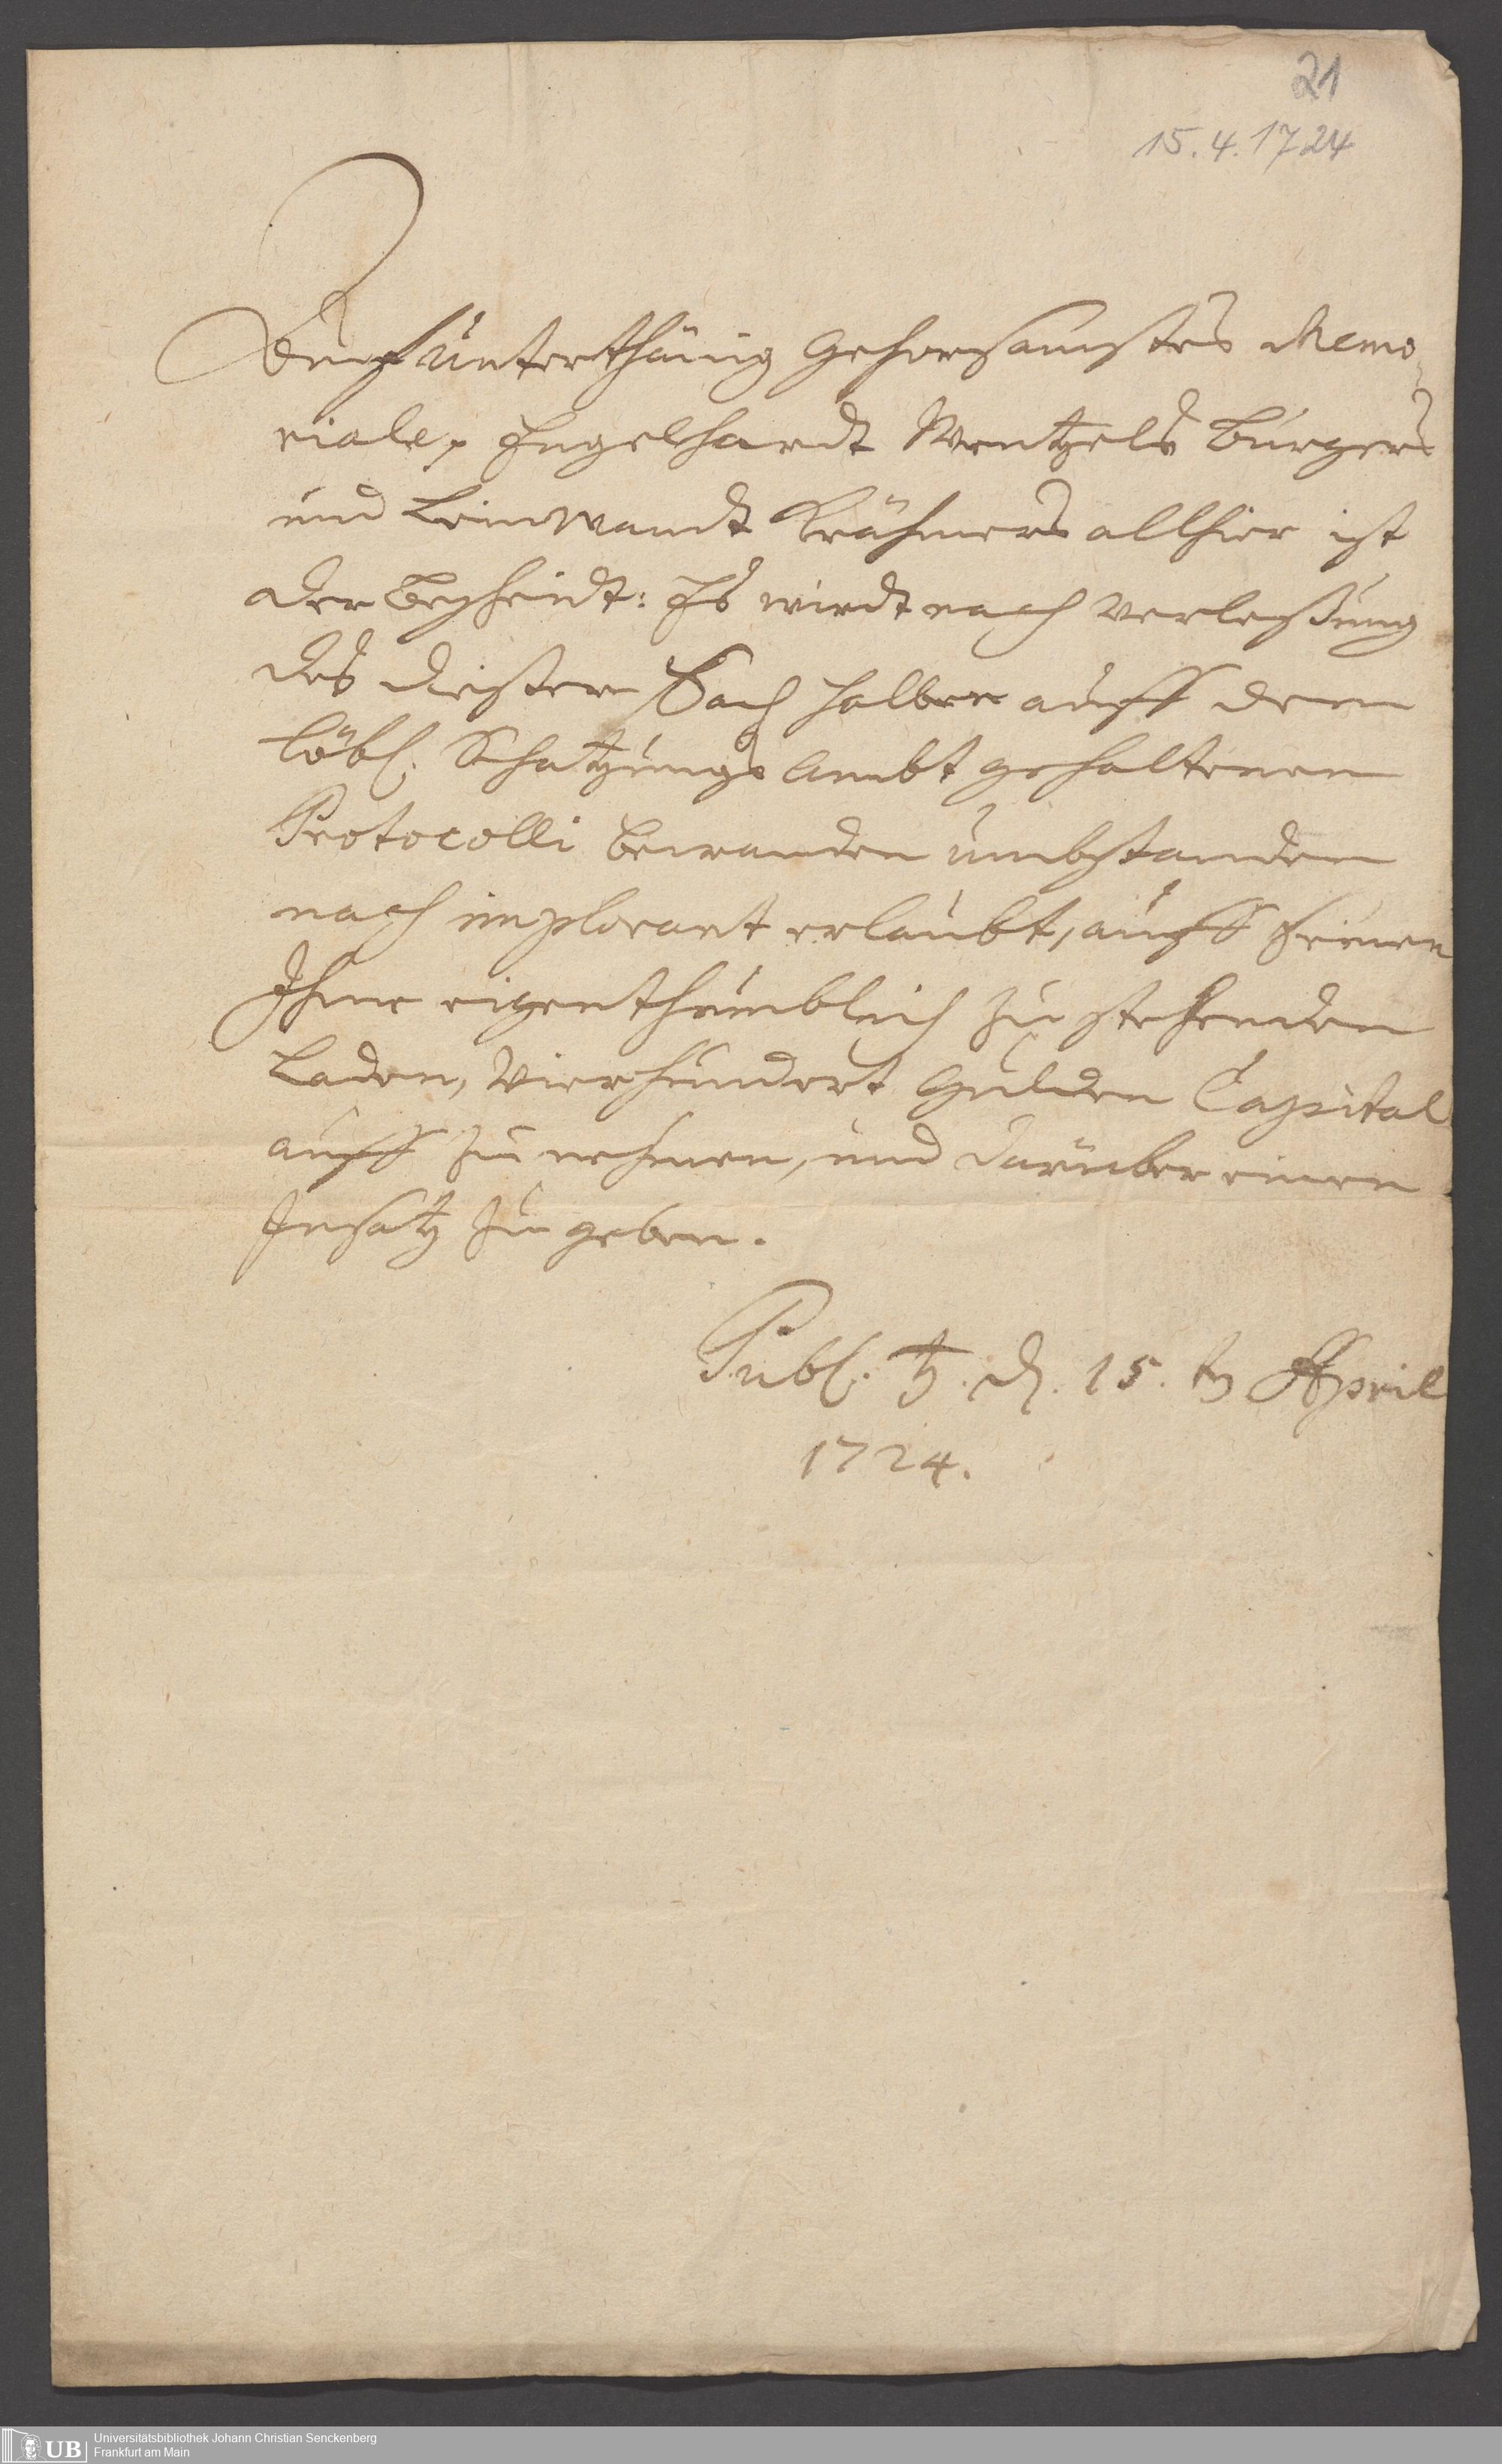 21
15.4.1724
Auff unterthänig Gehorsamstes Memo-
riale, Engelhardt Wentzels Burgers
und Leinwandt Krähmers allhier ist
der Bescheidt: Es wirdt nach verlesßung
des dießer Sach halben auff dem
löbl. Schatzungs Ambt gehaltenen
Protocolli bewanden umbstanden
nach implorant erlaubt, auff seinen
Ihme eigenthumblich zu stehenden
Laden, Vierhundert Gulden Capital
auff zu nehmen, und darüber einen
Insatz zu geben.
Publ. ♄. d. 15. tn April
1724.
UB
Universitätsbibliothek Johann Christian Senckenberg
Frankfurt am Main